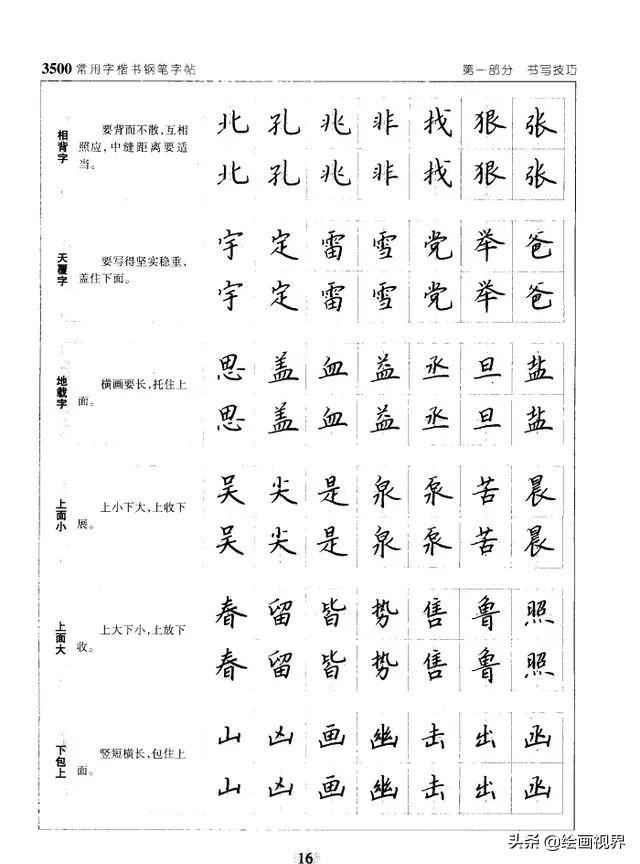 3500常用字楷书钢笔字帖
第一部分 书写技巧
相背字
要背而不散，互相
照应，中缝距离要适
当。
北 孔 兆 非 找 狠 张
北 孔 兆 非 找 狠 张
天覆字
要写得坚实稳重，
盖住下面。
宇 定 雷 雪 党 举 爸
宇 定 雷 雪 党 举 爸
地载字
横画要长，托住上
面。
思 盖 血 益 丞 旦 盐
思 盖 血 益 丞 旦 盐
上面小
上小下大，上收下
展。
吴 尖 是 泉 泵 苦 晨
吴 尖 是 泉 泵 苦 晨
上面大
上大下小，上放下
收。
春 留 皆 势 售 鲁 照
春 留 皆 势 售 鲁 照
下包上
竖短横长，包住上
面。
山 凶 画 幽 击 出 函
山 凶 画 幽 击 出 函
16
头条@绘画视界